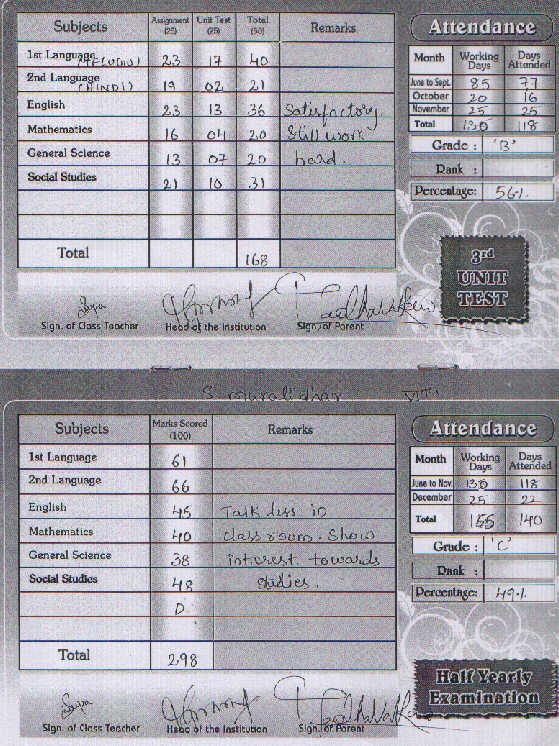 Subjects Assignment (25) Unit Test (25) Total (50) Remarks
1st Language (TELUGU) 23 17 40
2nd Language (HINDI) 19 02 21
English 23 13 36 Satisfactory
Mathematics 16 04 20 Still work
General Science 13 07 20 hard.
Social Studies 21 10 31
Total 168
Sign. of Class Teacher Head of the Institution Sign. of Parent
Attendance
Month Working Days Days Attended
June to Sept. 85 77
October 20 16
November 25 25
Total 130 118
Grade : 'B'
Rank :
Percentage: 56%
3rd
UNIT
TEST
S. muralidhar VIII
Subjects Marks Scored (100) Remarks
1st Language 61
2nd Language 66
English 45 Talk less in
Mathematics 40 class room. Show
General Science 38 interest towards
Social Studies 48 studies.
D
Total 298
Sign. of Class Teacher Head of the Institution Sign. of Parent
Attendance
Month Working Days Days Attended
June to Nov. 130 118
December 25 22
Total 155 140
Grade : 'C'
Rank :
Percentage: 49%
Half Yearly
Examination